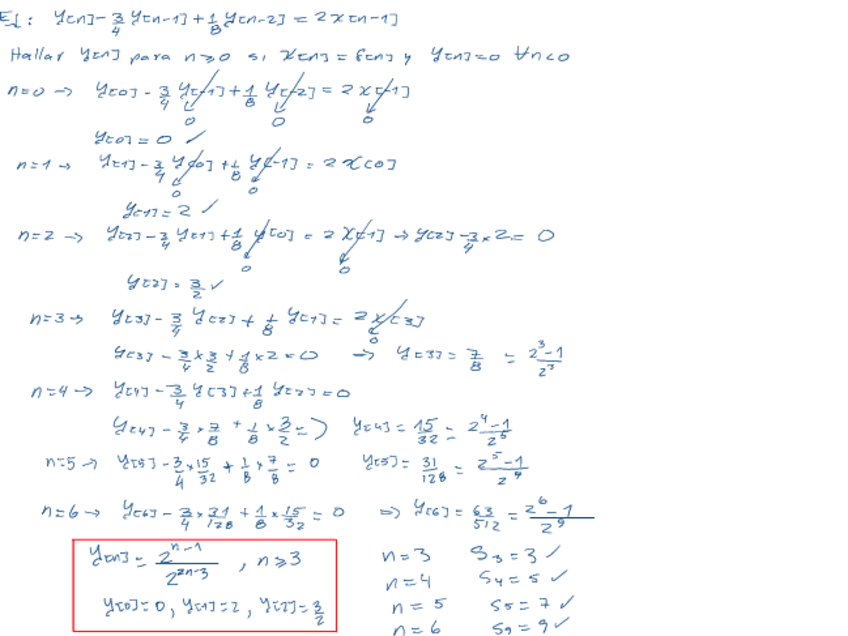 Ej: y[n]-3/4 y[n-1]+1/8 y[n-2]=2x[n-1]
Hallar y[n] para n≥0 si x[n]=δ[n] y y[n]=0 ∀n<0
n=0 → y[0]-3/4 y[-1]+1/8 y[-2]=2x[-1]
0 0 0
y[0]=0 ✓
n=1 → y[1]-3/4 y[0]+1/8 y[-1]=2x[0]
0 0
y[1]=2 ✓
n=2 → y[2]-3/4 y[1]+1/8 y[0]=2x[1] → y[2]-3/4×2=0
0 0
y[2]=3/2 ✓
n=3 → y[3]-3/4 y[2]+1/8 y[1]=2x[3]
0
y[3]-3/4×3/2+1/8×2=0 → y[3]=7/8=2^3-1/2^3
n=4 → y[4]-3/4 y[3]+1/8 y[2]=0
y[4]-3/4×7/8+1/8×3/2=) y[4]=15/32=2^4-1/2^5
n=5 → y[5]-3/4×15/32+1/8×7/8=0 y[5]=31/128=2^5-1/2^7
n=6 → y[6]-3/4×31/128+1/8×15/32=0 ⇒ y[6]=63/512=2^6-1/2^9
y[n]=2^n-1/2^2n-3, n≥3
y[0]=0, y[1]=2, y[2]=3/2
n=3 S3=3 ✓
n=4 S4=5 ✓
n=5 S5=7 ✓
n=6 S9=9 ✓